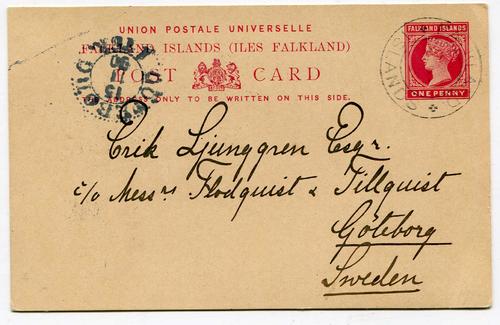 UNION POSTALE UNIVERSELLE
FALKLAND ISLANDS (ILES FALKLAND)
POST CARD
ADDRESS ONLY TO BE WRITTEN ON THIS SIDE.
FALKLAND ISLANDS
ONE PENNY
15
90
Erik Ljunggren Esqr.
c/o Messrs Flodquist & Tillquist
Göteborg
Sweden